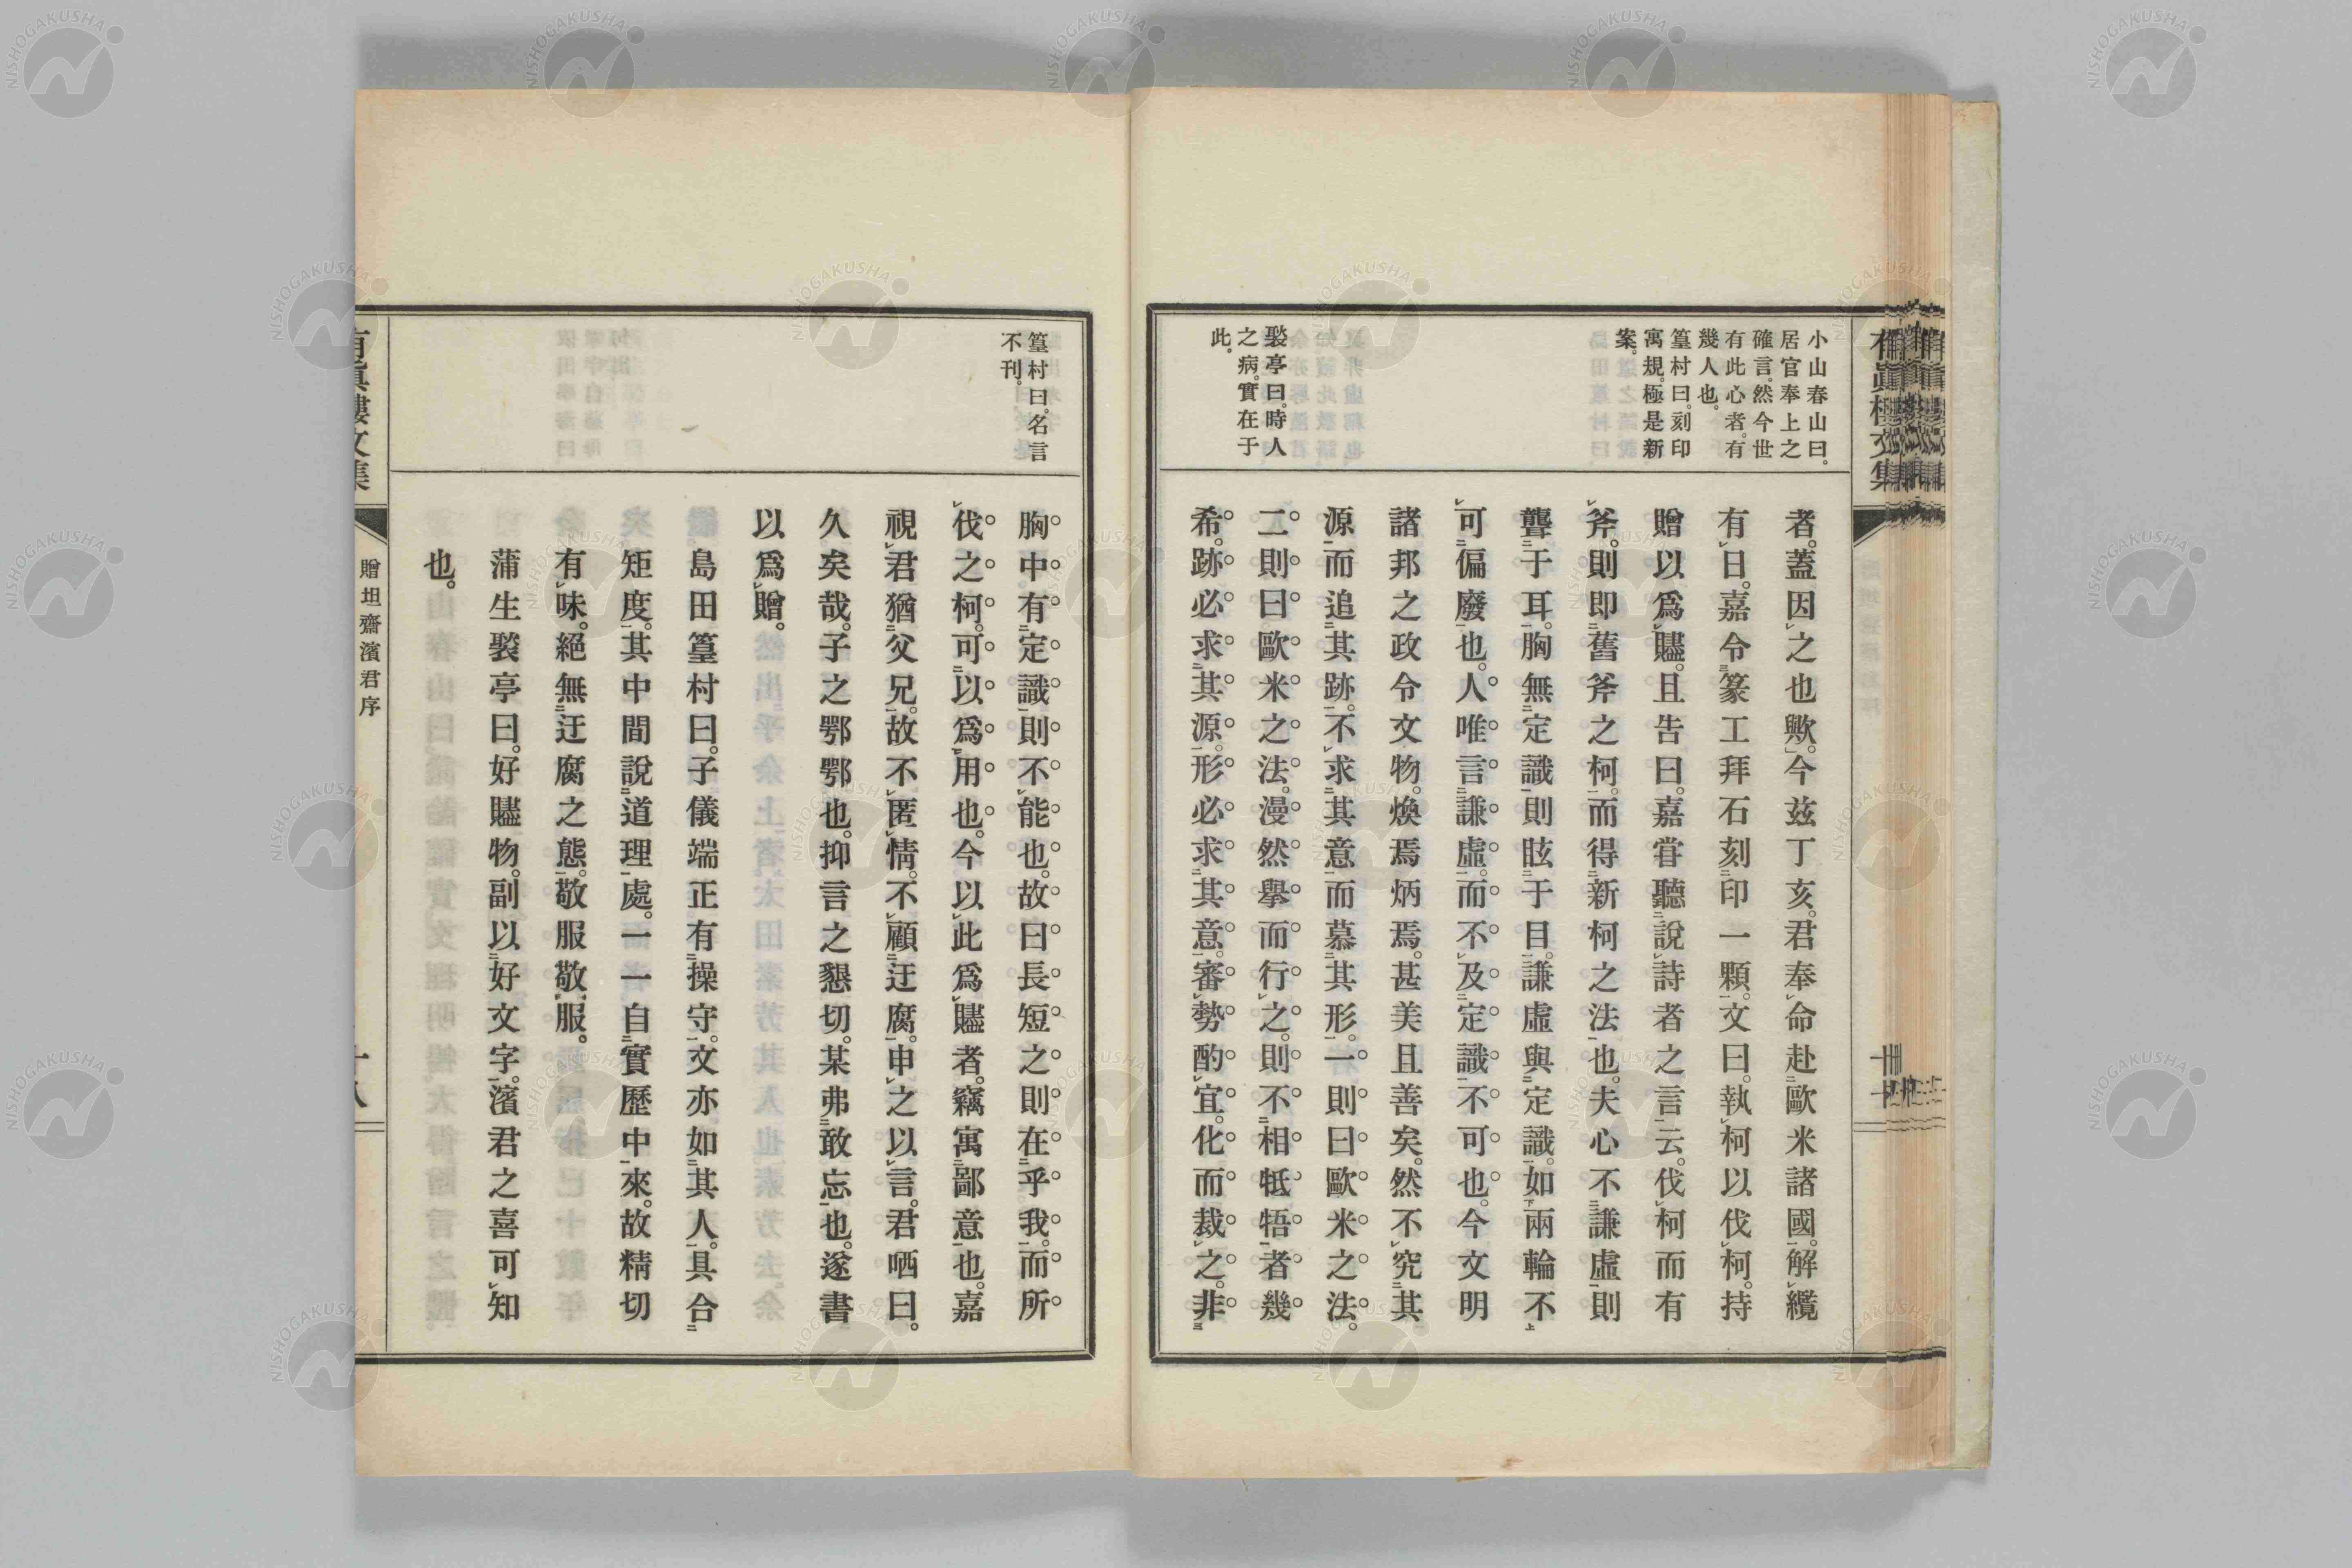 小山春山曰。
居官奉上之
確言。然今世
有此心者。有
幾人也。
篁村曰。刻印
寓規。極是新
案。
褧亭曰。時人
之病。實在于
此。
者。蓋因之也歟。今玆丁亥。君奉命赴歐米諸國。解纜
有日。嘉令篆工拜石刻印一顆。文曰。執柯以伐柯。持
贈以爲贐。且告曰。嘉甞聽說詩者之言云。伐柯而有
斧。則卽舊斧之柯。而得新柯之法也。夫心不謙虛則
聾于耳。胸無定識則眩于目。謙虛與定識。如兩輪不
可偏廢也。人唯言謙虛。而不及定識不可也。今文明
諸邦之政令文物。煥焉炳焉。甚美且善矣。然不究其
源而追其跡。不求其意而慕其形。一則曰歐米之法。
二則曰歐米之法。漫然擧而行之。則不相牴牾者幾
希。跡必求其源。形必求其意。審勢酌宜。化而裁之。非
篁村曰。名言
不刊。
胸中有定識則不能也。故曰長短之則在乎我。而所
伐之柯。可以爲用也。今以此爲贐者。竊寓鄙意也。嘉
視君猶父兄。故不匿情。不顧迂腐。申之以言。君哂曰。
久矣哉。子之鄂鄂也。抑言之懇切。某弗敢忘也。遂書
以爲贈。
島田篁村曰。子儀端正有操守。文亦如其人。具合
矩度。其中間說道理處。一一自實歷中來。故精切
有味。絕無迂腐之態。敬服敬服。
蒲生褧亭曰。好贐物。副以好文字。濱君之喜可知
也。
贈坦齋濱君序